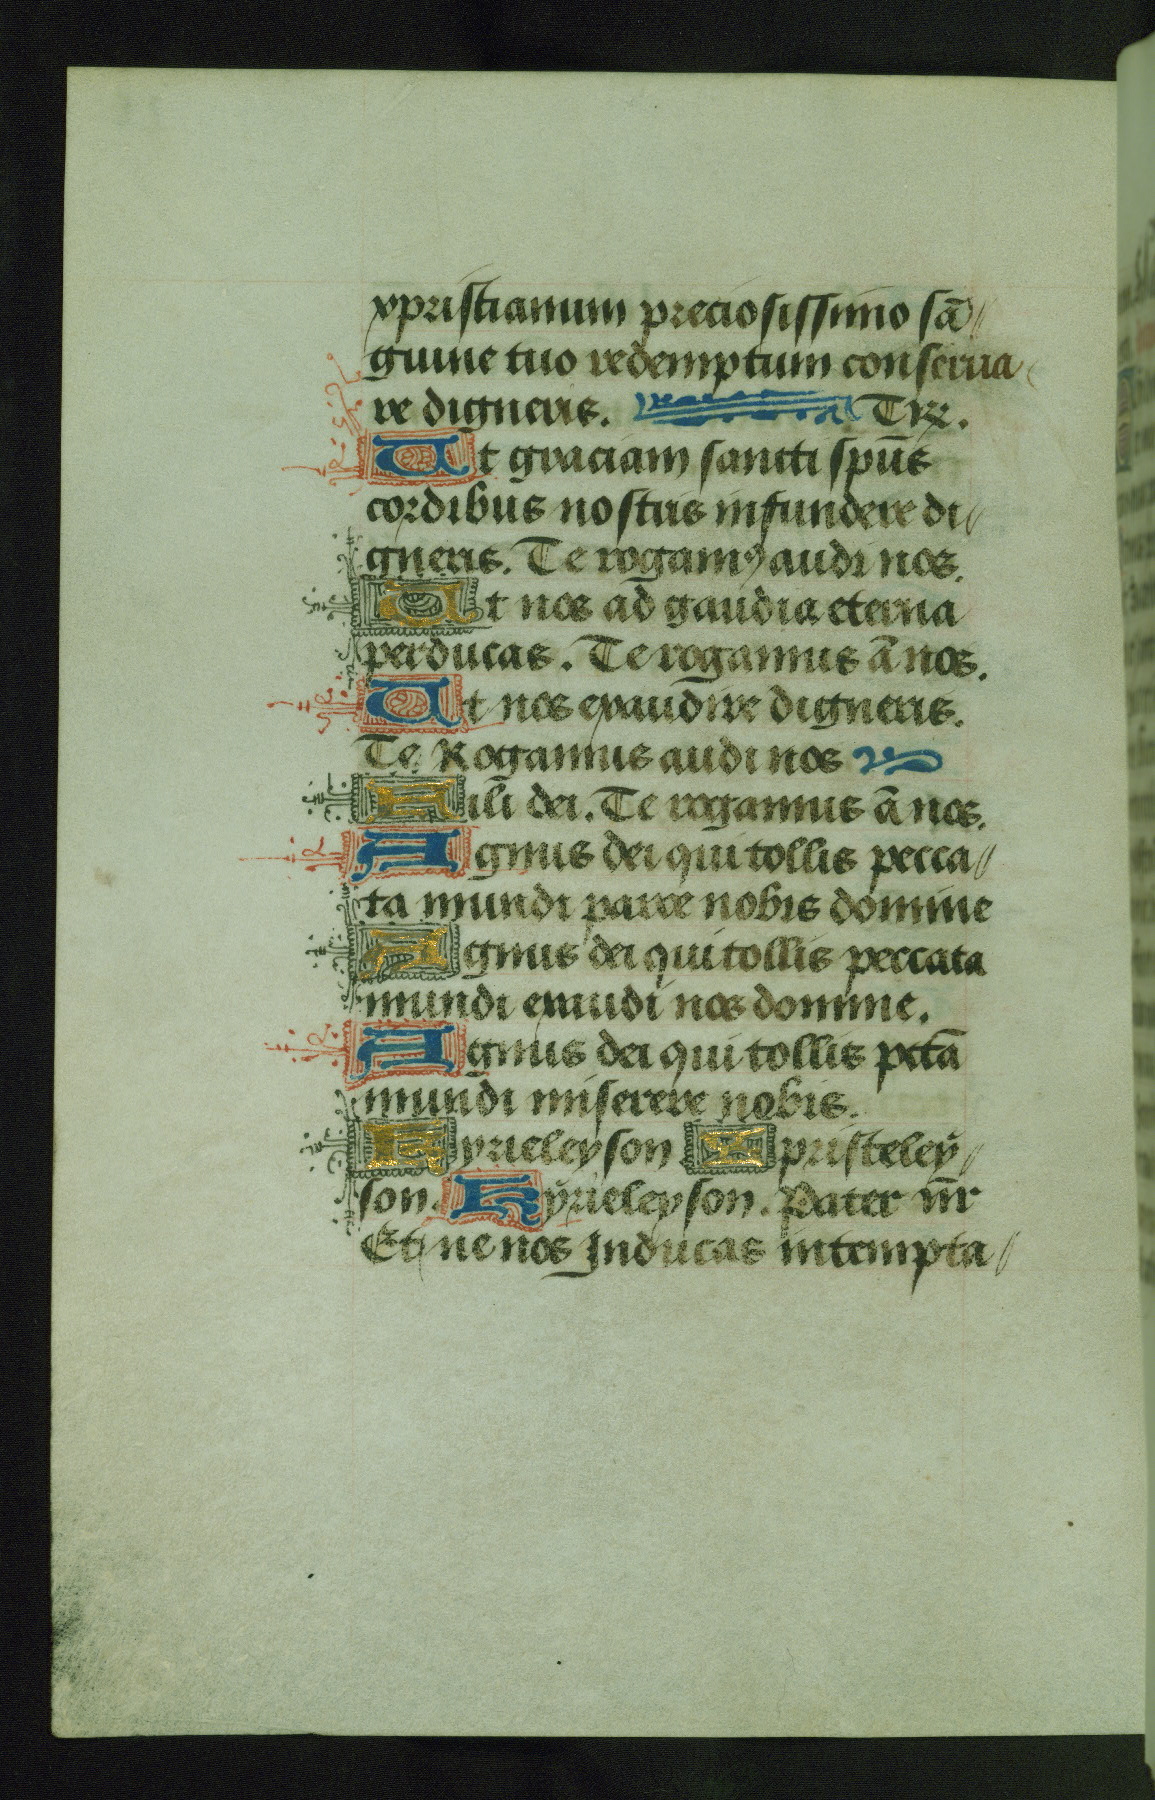 xpristianum preciosissimo sā
guine tuo redemptum conserua
re digneris. Trr.
Ut graciam sancti spūs
cordibus nostris infundere di
gneris. Te rogamꝰ audi nos.
Ut nos ad gaudia eterna
perducas. Te rogamus ā nos.
Ut nos exaudire digneris.
Te Rogamus audi nos
Fili dei. Te rogamus ā nos.
Agnus dei qui tollis pecca
ta mundi parce nobis domine
Agnus dei qui tollis peccata
mundi exaudi nos domine.
Agnus dei qui tollis pctā
mundi miserere nobis.
Kyrieleyson Xpristeley
son. Kyrieleyson. Pater nr̄
Et ne nos Inducas intempta